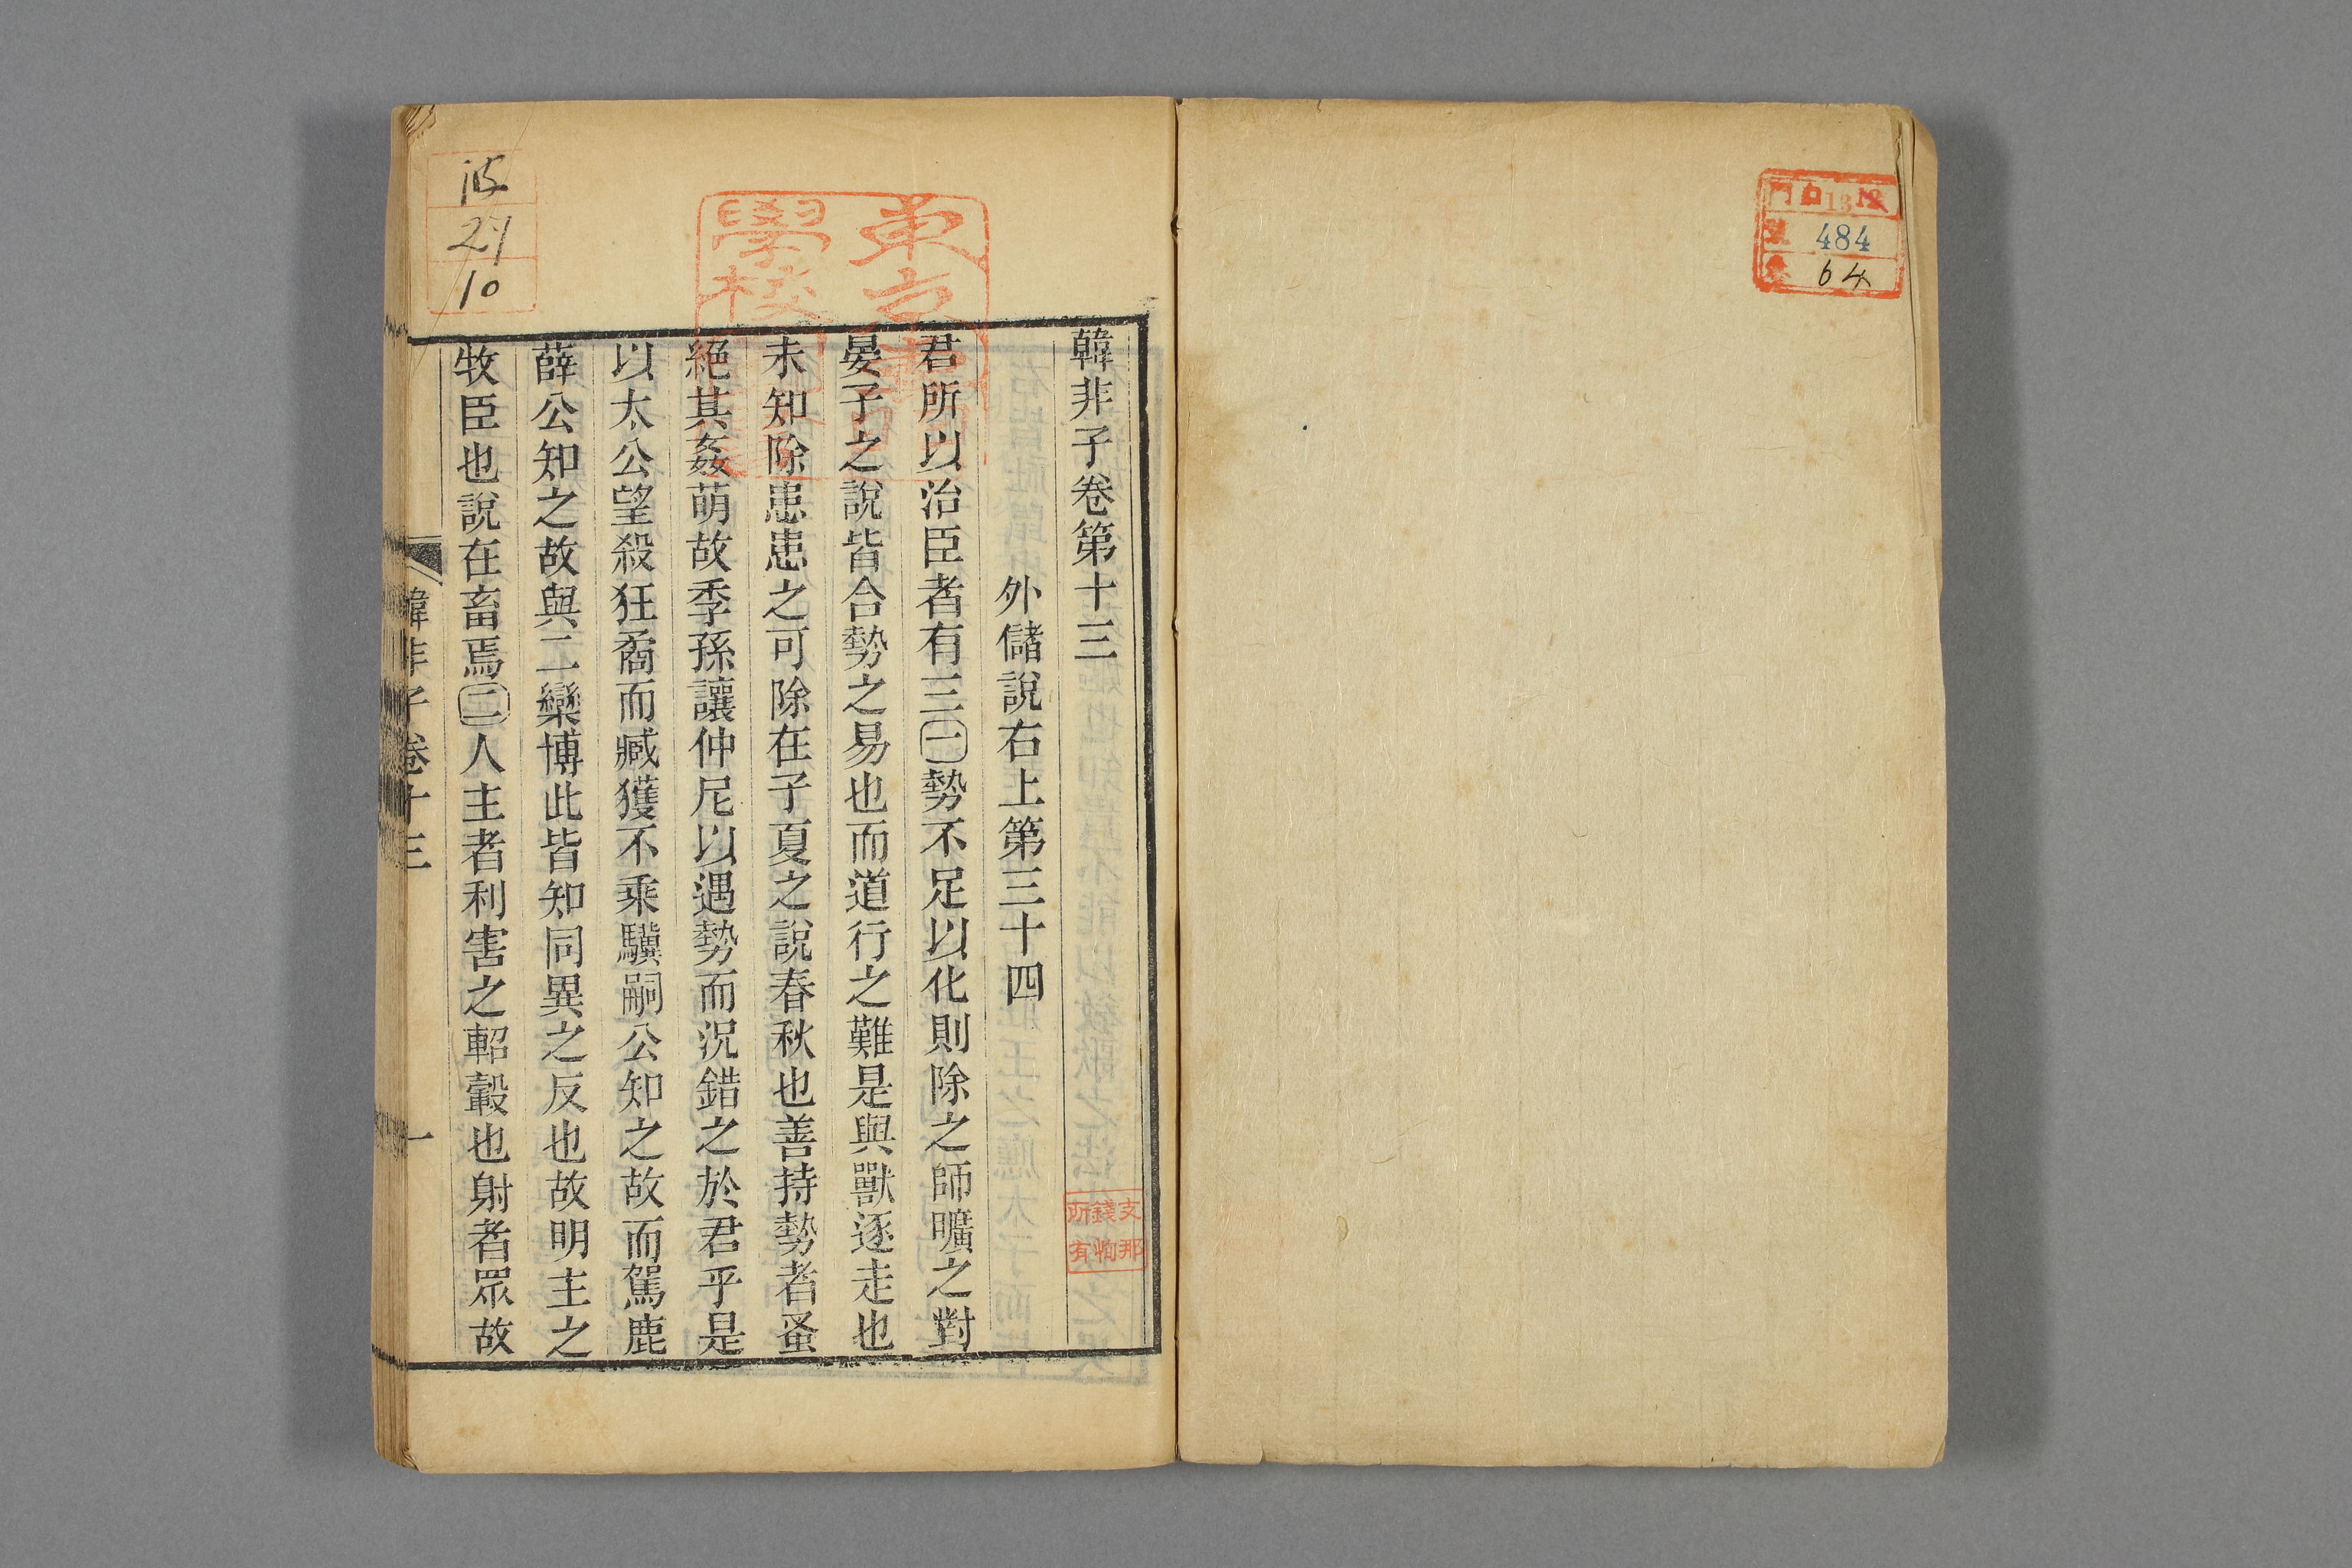 484
64
韓非子卷第十三
外儲說右上第三十四
君所以治臣者有三㊀勢不足以化則除之師曠之對
晏子之說皆合勢之易也而道行之難是與獸逐走也
未知除患患之可除在子夏之說春秋也善持勢者蚤
絕其姦萌故季孫讓仲尼以遇勢而況錯之於君乎是
以太公望殺狂矞而臧獲不乘驥嗣公知之故而駕鹿
薛公知之故與二欒博此皆知同異之反也故明主之
牧臣也說在畜焉㊁人主者利害之軺轂也射者眾故
韓非子卷十三
一
支那
錢恂
所有
學校
27
10